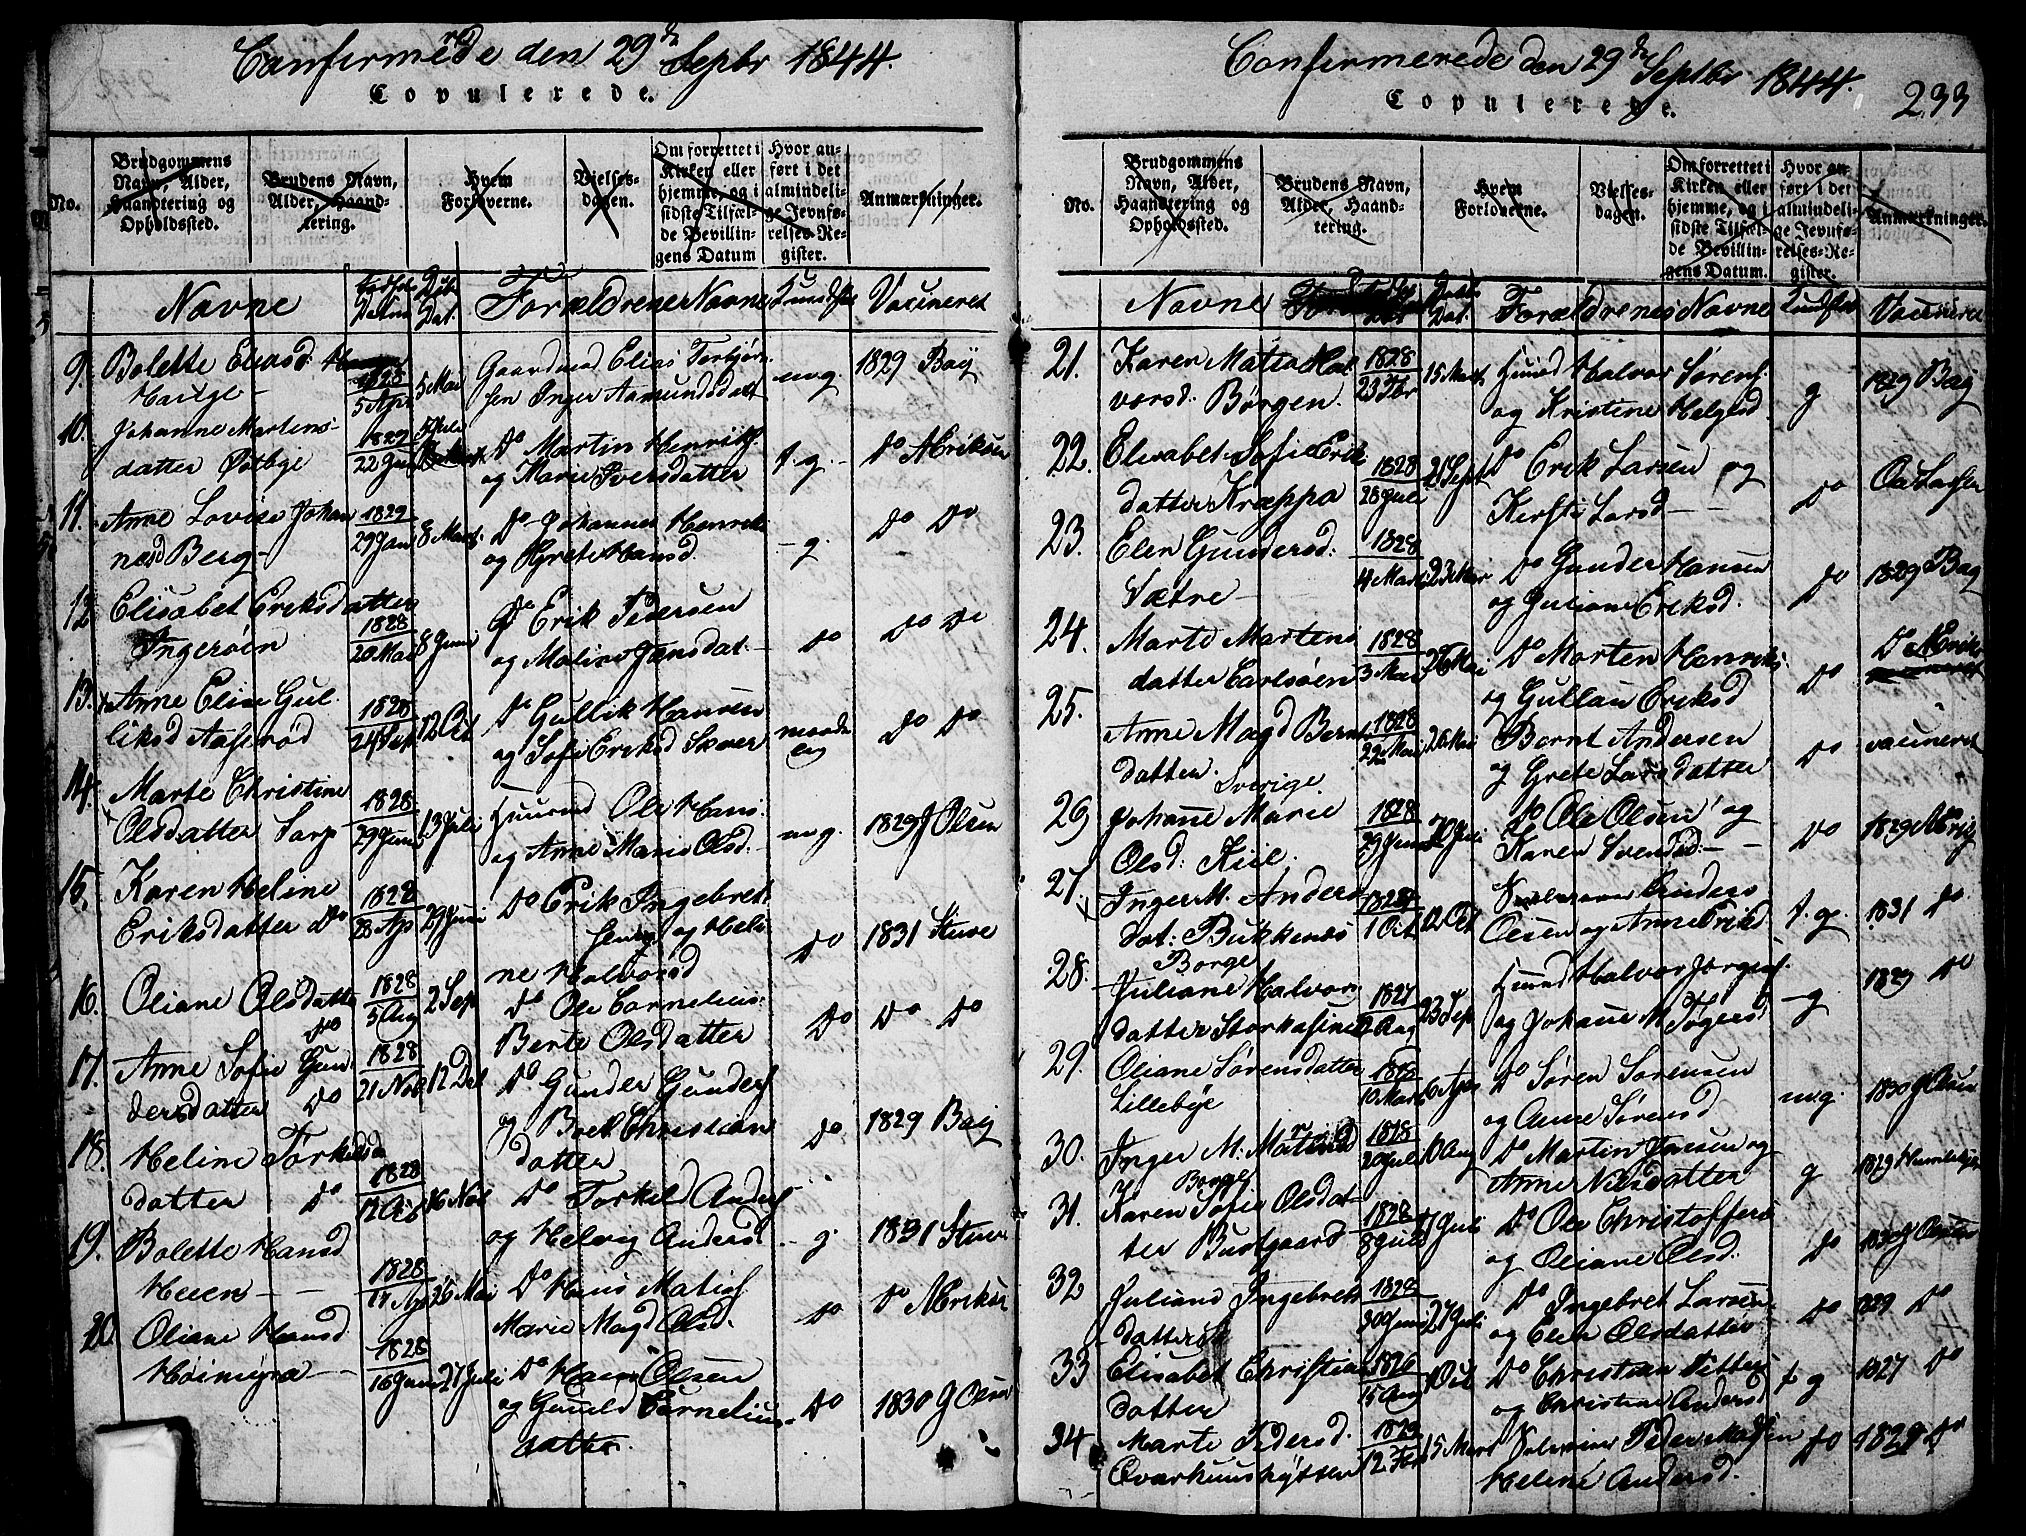 Confirmerede den 29de Septbr 1844.
Copulerede.
No.
Brudgommens Navn, Alder, Haandtering og Opholdssted.
Brudens Navn, Alder, Haandtering.
Hvem Forloverne.
Vielsesdagen.
Om forrettet i Kirken eller hjemme, og i sidste Tilfælde Bevillingens Datum
Hvor anført i det almindelige Jevnførelses-Register.
Anmærkninger.
Navne Fødsels Datum Døb Dat. Forældrenes Navne Kundskab Vacineret
9. Bolette Eliasd:
Hauge 1828 5 Apr 5 Mai Gaardmd Elias Torbjørn
sen Inger Aamundsdatt mg. 1829 Bøg
10. Johanne Martens
datter Østbye 1829 22 Jan Do Martin Henriks.
og Marie Iversdatter t.g. Do AEriksen
11. Anne Lovise Johan
nesd Berg 1829 29 Jan 8 Marts Do Johannes Henrik
og Grete Hansd. g. Do Do
12 Elisabet Eriksdatter
Ingerøen 1828 20 Mai 8 Juni Do Erik Pedersen
og Maline Jansdat. Do Do Do
13. Anne Elise Gul
liksd Aaserød 1828 24 Sep 12 Oct Do Gullik Hansen
og Sofie Eriksd Skover Do Do
14. Marte Christine
Olsdatter Sarp 1828 29 Juni 13 Juli Huusmd Ole Hans
og Anne Marie Olsd. mg. 1829 J Olsen
15. Karen Heline
Eriksdatter Do 1828 28 Apr 29 Juni Do Erik Ingebret
sen og Heli
ne Halvorsd Do 1831 Stuve
16. Oliane Olsdatter
Do 1828 5 Aug 2 Sep Do Ole Cornelius.
Berte Olsdatter Do Do Do
17. Anne Sofie Gun
dersdatter Do 1828 21 Nov 12 Do Gunder Gunders
Christian
datter Do 1829 Bøg
18. Heline Torkilds
datter Do 1828 12 Oct 16 Nov Do Torkeld Anders
og Helvig Andersd g. 1831 Stuve
19. Bolette Hansd
Heien 1828 17 Apr 26 Mai Do Hans Matias
Marie Magd Olsd. Do Do AEriksen
20. Oliane Hansd
Høimyra 1828 16 Juni 27 Juli Do Hans Olsen
og Gunild Cornelius
datter. Do 1830 J Olsen
Confirmerede den 29de Septbr 1844.
233
Copulerede.
No.
Brudgommens Navn, Alder, Haandtering og Opholdssted.
Brudens Navn, Alder, Haandtering.
Hvem Forloverne.
Vielsesdagen.
Om forrettet i Kirken eller hjemme, og i sidste Tilfælde Bevillingens Datum.
Hvor anført i det almindelige Jevnførelses-Register.
Anmærkninger.
Navne Døbe Dat. Forældrenes Navne Kundskab Vacineret
21. Karen Matia Hal
vorsd. Børgen. 1828 23 Fbr 15 Marts Huusmd Halvor Sørens.
og Kristine Helgesd. g 1829 Bøg
22. Elisabet Sofie Erik
datter Kræppa 1828 28 Juli 21 Sept Do Erik Larsen og
Kersti Larsd Do Ole Larsen
23. Elen Gundersd:
Sætre 1828 4 Marts 23 Mar Do Gunder Hansen
og Juliane Eriksd. Do 1829 Bøg
24. Marte Martins
datter Carlsøen 1828 3 Mai 26 Mai Do Morten Henriks.
og Gullau Eriksd Do Do AEriks
25. Anne Magd Bernt
datter. Sverige. 1828 22 Mai 26 Mai Bernt Andersen
og Grete Larsdatter Do vacineret
26 Johane Marie
Olsd: Kiil. 1828 29 Juni 20 Juli Do Ole Olsen og
Karen Svendsd. Do 1829 AErik
27. Inger M. Anders
dat: Bukkenes 1828 1 Oct 12 Oct Selveier Anders
Olsen og Anne Eriksd t.g. 1831 Do
28. Borge
Juliane Halvors
datter Storkasine 1827 Aug 23 Sep Huusmd Halvor Jørgens.
og Johane M Tøgersd g. 1829 Do
29. Oliane Sørensdatter
Lillebye 1828 10 Marts 6 Apr Do Søren Sørensen
og Anne Sørensd mg. 1830 J Olsen
30. Inger M. Martinsd
1828 20 Juli 10 Aug Do Martin Jansen og
Anne Nilsdatter g 1829
31. Borge
Karen Sofie Olsdat
ter Bustgaard 1828 8 Juli Juli Do Ole Christoffers
og Oliane Olsd. Do 1830 J Olsen
32 Juliane Ingebrets
datter 1828 30 Juni 27 Juli Do Ingebret Larsen
og Elen Olsdatter Do 1829 Do
33 Elisabet Christian
datter 1826 15 Aug Do Christian Petters
og Christine Andersd t g 1827 Do
34 Marte Pedersd.
Qværkunshytten 1829 12 Fbr 15 Marts Selveier Peder Matsen
Helene Andersd. Do 1829 Do